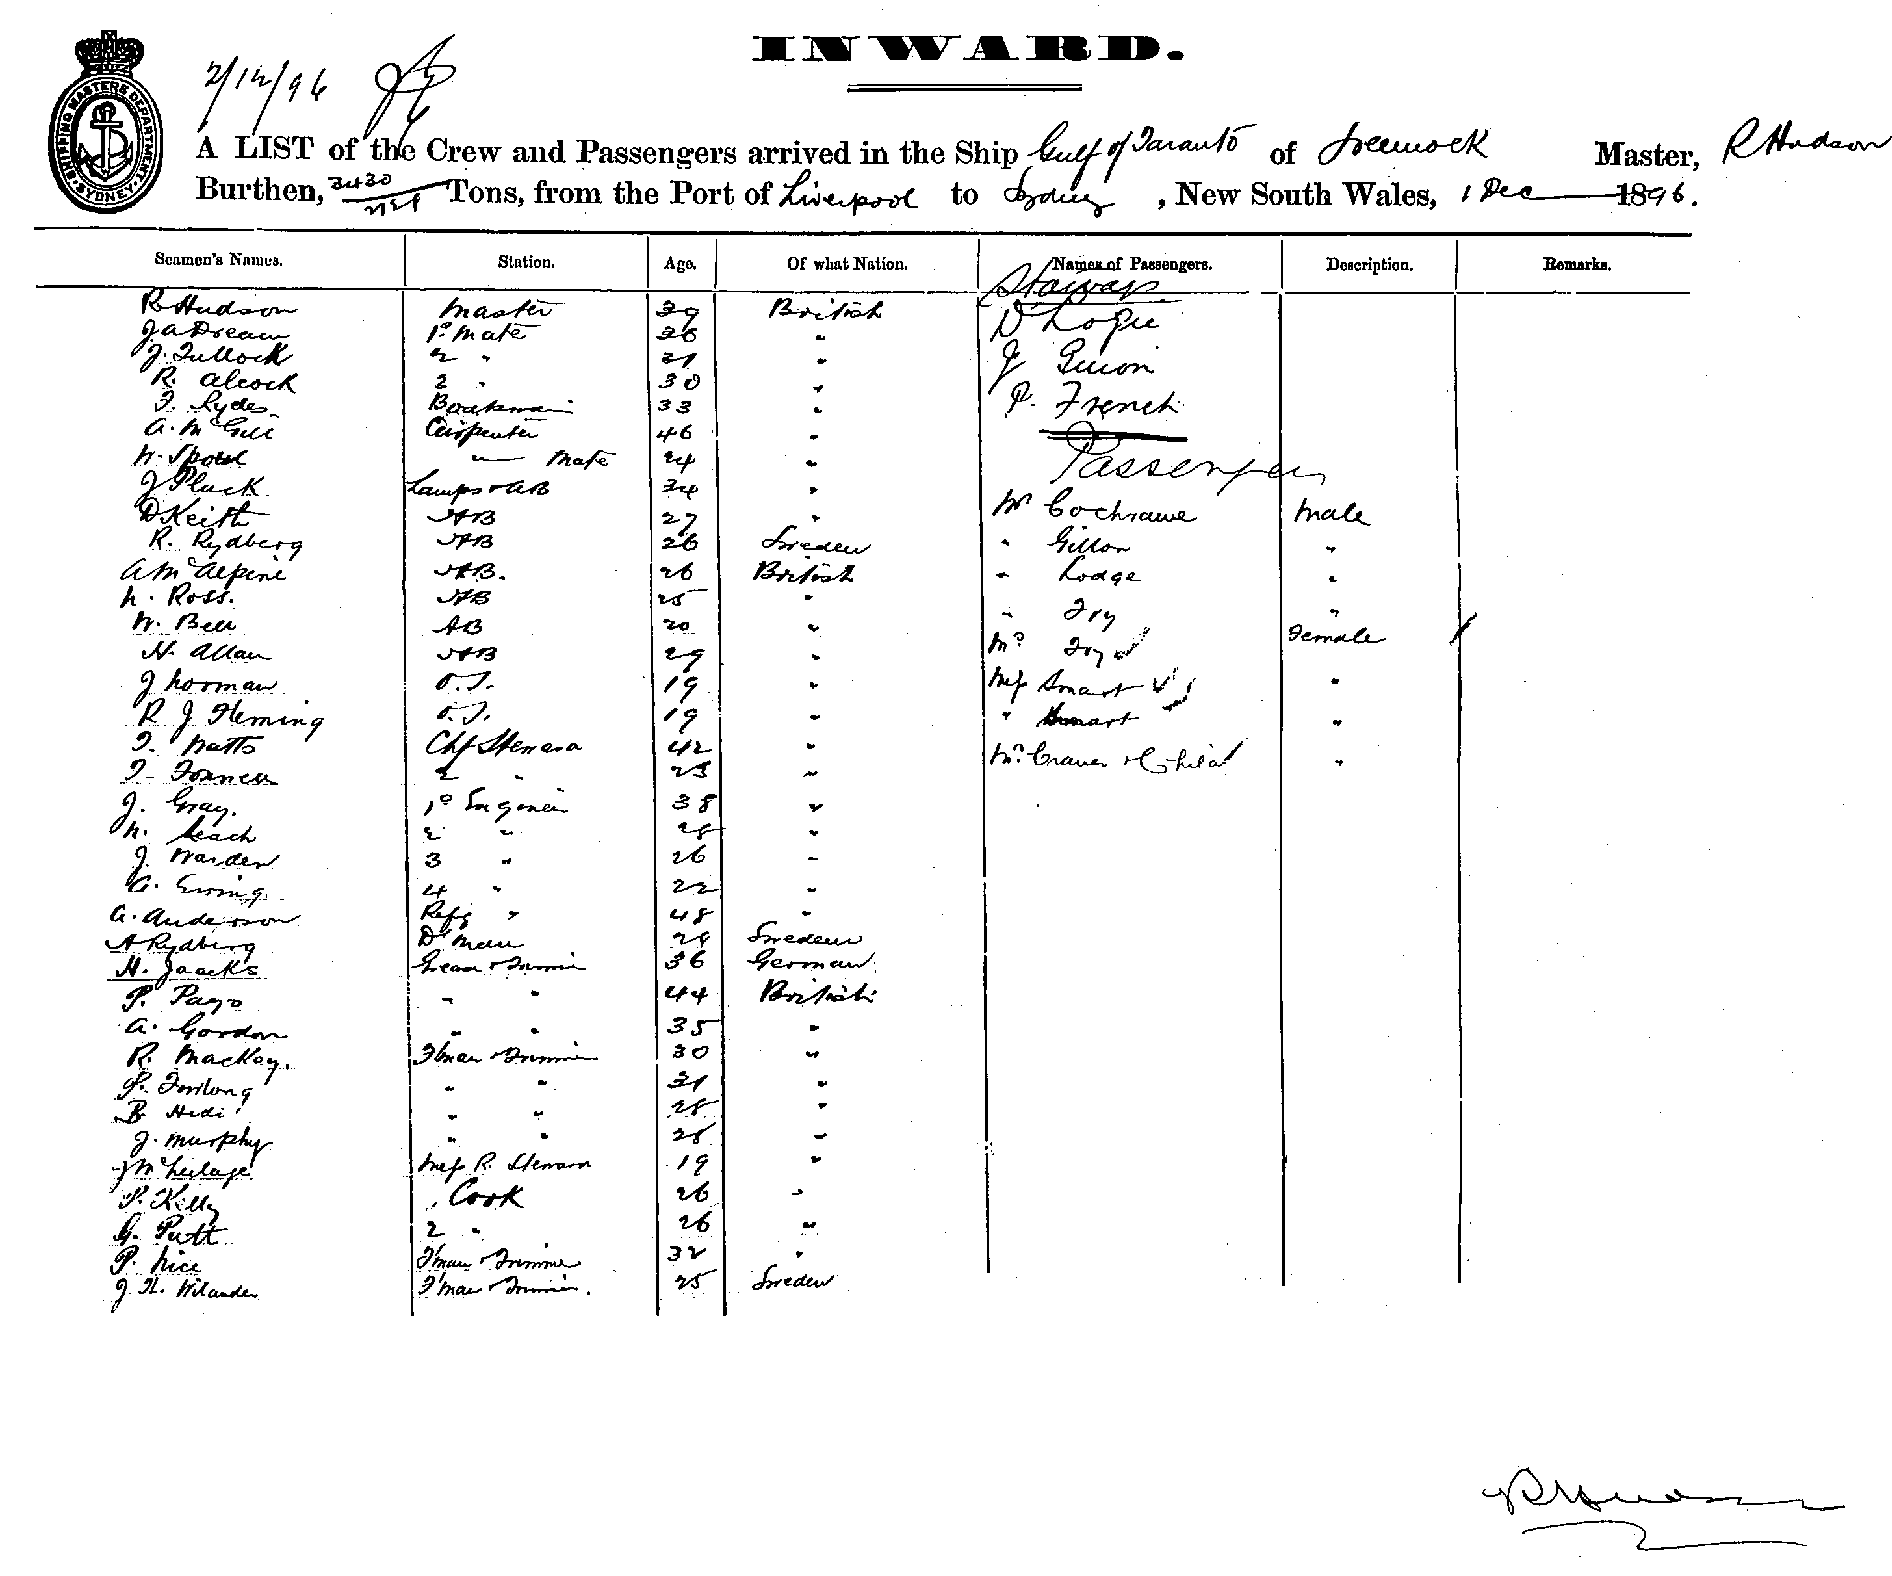 INWARD.
2/12/96
SHIPPING MASTERS DEPARTMENT SYDNEY
A LIST of the Crew and Passengers arrived in the Ship Gulf of Taranto of Greenock Master, R Hudson
Burthen, 3430 Tons, from the Port of Liverpool to Sydney, New South Wales, 1 Dec 1896.
Seamen's Names. Station. Age. Of what Nation. Names of Passengers. Description. Remarks.
Stowaways
R Hudson Master 29 British D Logie
1o Mate "
J. Tullock 2 " " J
R. Alcock 2 " 30 "
33 " P. French
A. McGill Carpenter 46 "
" Mate 24 " Passengers
J Pluck Lamps & AB 34 "
D Keith AB 27 " Mr Cochrane Male
R. Rydberg AB 26 Sweden " Gillon "
A McAlpine AB. 26 British " Lodge "
N. Ross. AB 25 " " Foy "
W. Bell AB 20 " Mrs Foy Female
H. Allan AB 29 "
J Norman O.S. 19 " Miss Smart "
R J Fleming O.S. 19 " " Smart "
T. Watts Chf Steward 42 " Mrs Craven & Child "
T. Francis 2 " 23 "
J. Gray. 1o Engineer 38 "
N. Leach 2 " 28 "
J. Warden 3 " 26 "
A. Ewing 4 " 22 "
A. Anderson Refg " 48 "
A Rydberg D'man Sweden
H. Jaacks Greaser & Trimmer 36 German
P. " " 44 British
A. Gordon " " 35 "
R. Mackay. F'man & Trimmer 30 "
P. Furlong " " "
B " " 28 "
J. Murphy " " 28 "
Mess R. Steward 19 "
P. Kelly Cook 26 "
G. Putt 2 " 26 "
P. Nice F'man & Trimmer 32 "
J. H. Wilander F'man & Trimmer. 25 Sweden
R Hudson